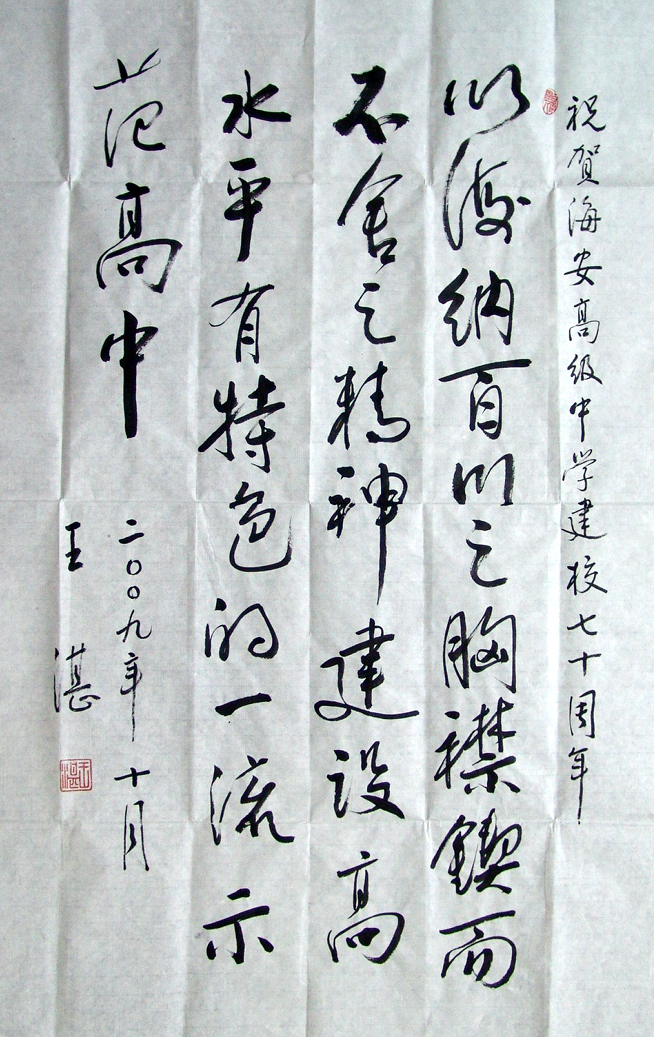 祝贺海安高级中学建校七十周年
以海纳百川之胸襟鍥而
不舍之精神建设高
水平有特色的一流示
范高中
二〇〇九年十月
王湛